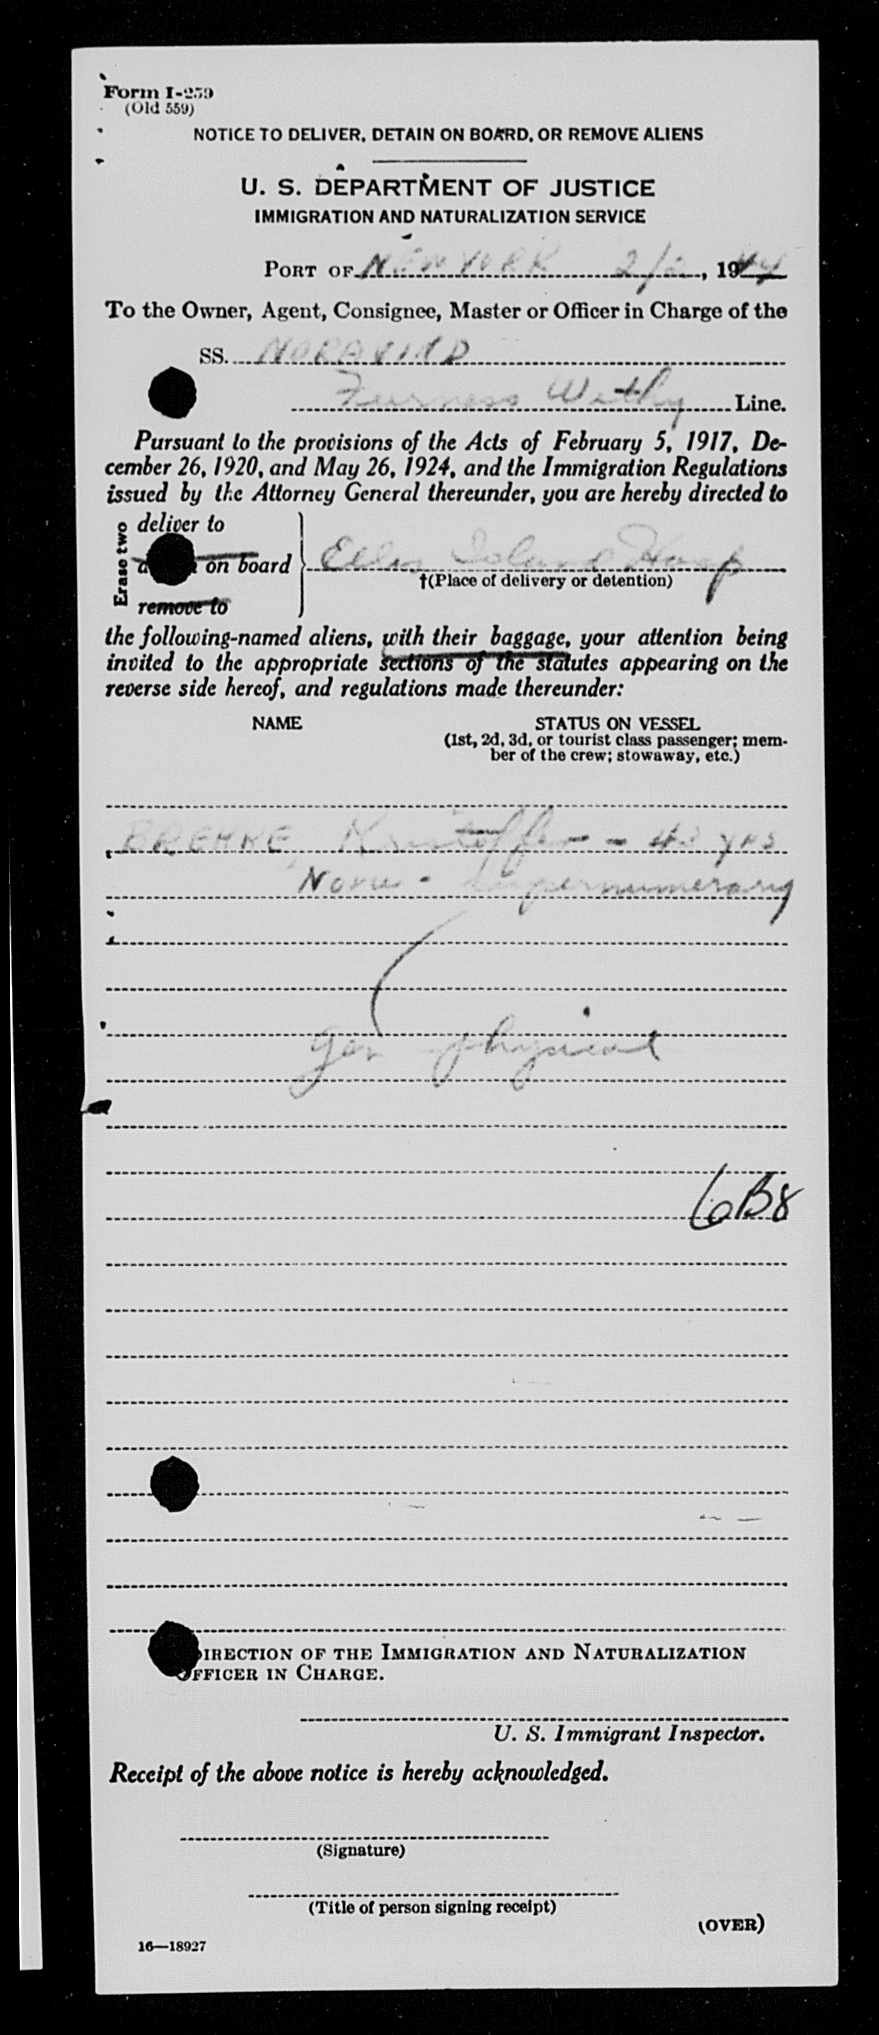 Form I-259
(Old 559)
NOTICE TO DELIVER, DETAIN ON BOARD, OR REMOVE ALIENS
U. S. DEPARTMENT OF JUSTICE
IMMIGRATION AND NATURALIZATION SERVICE
PORT OF NEW YORK 2/2, 1944
To the Owner, Agent, Consignee, Master or Officer in Charge of the
SS. NORAVIND
Furness Withy Line.
Pursuant to the provisions of the Acts of February 5, 1917, De-
cember 26, 1920, and May 26, 1924, and the Immigration Regulations
issued by the Attorney General thereunder, you are hereby directed to
Erase two
deliver to
on board Ellis Island Hosp
†(Place of delivery or detention)
remove to
the following-named aliens, with their baggage, your attention being
invited to the appropriate sections of the statutes appearing on the
reverse side hereof, and regulations made thereunder:
NAME STATUS ON VESSEL
(1st, 2d, 3d, or tourist class passenger; mem-
ber of the crew; stowaway, etc.)
Kristoffer - yrs
Norw - Supernumerary
Gen physical
6B8
DIRECTION OF THE IMMIGRATION AND NATURALIZATION
OFFICER IN CHARGE.
U. S. Immigrant Inspector.
Receipt of the above notice is hereby acknowledged.
(Signature)
(Title of person signing receipt)
(OVER)
16—18927